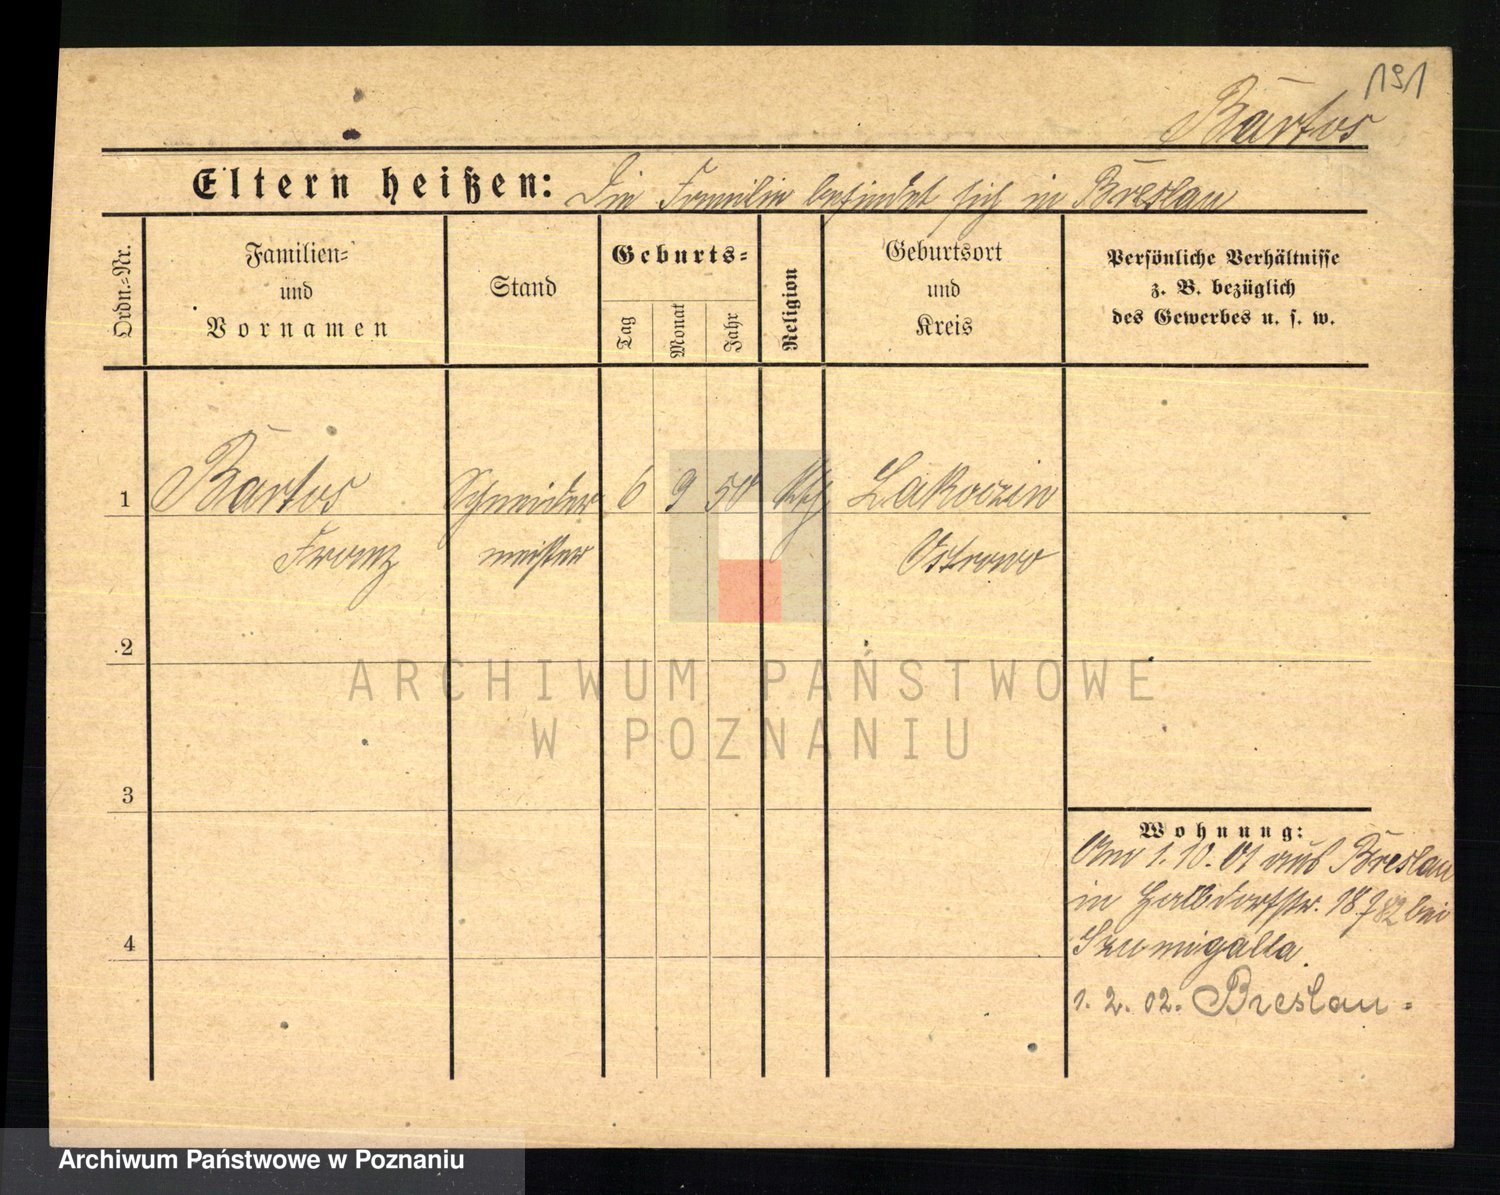 191
Bartos
Eltern heißen: Die Familie befindet sich in Breslau
Ordn.-Nr.
Familien-
und
Vornamen
Stand
Geburts-
Tag
Monat
Jahr
Religion
Geburtsort
und
Kreis
Persönliche Verhältnisse
z. B. bezüglich
des Gewerbes u. s. w.
1 Bartos Schneider 6 9 50 kth Lakoczin
Franz meister Ostrowo
2
3
4
Wohnung:
Am 1.10.01 aus Breslau
in Halbdorfstr. bei
Szumigalla.
1. 2. 02. Breslau.
ARCHIWUM PAŃSTWOWE
W POZNANIU
Archiwum Państwowe w Poznaniu